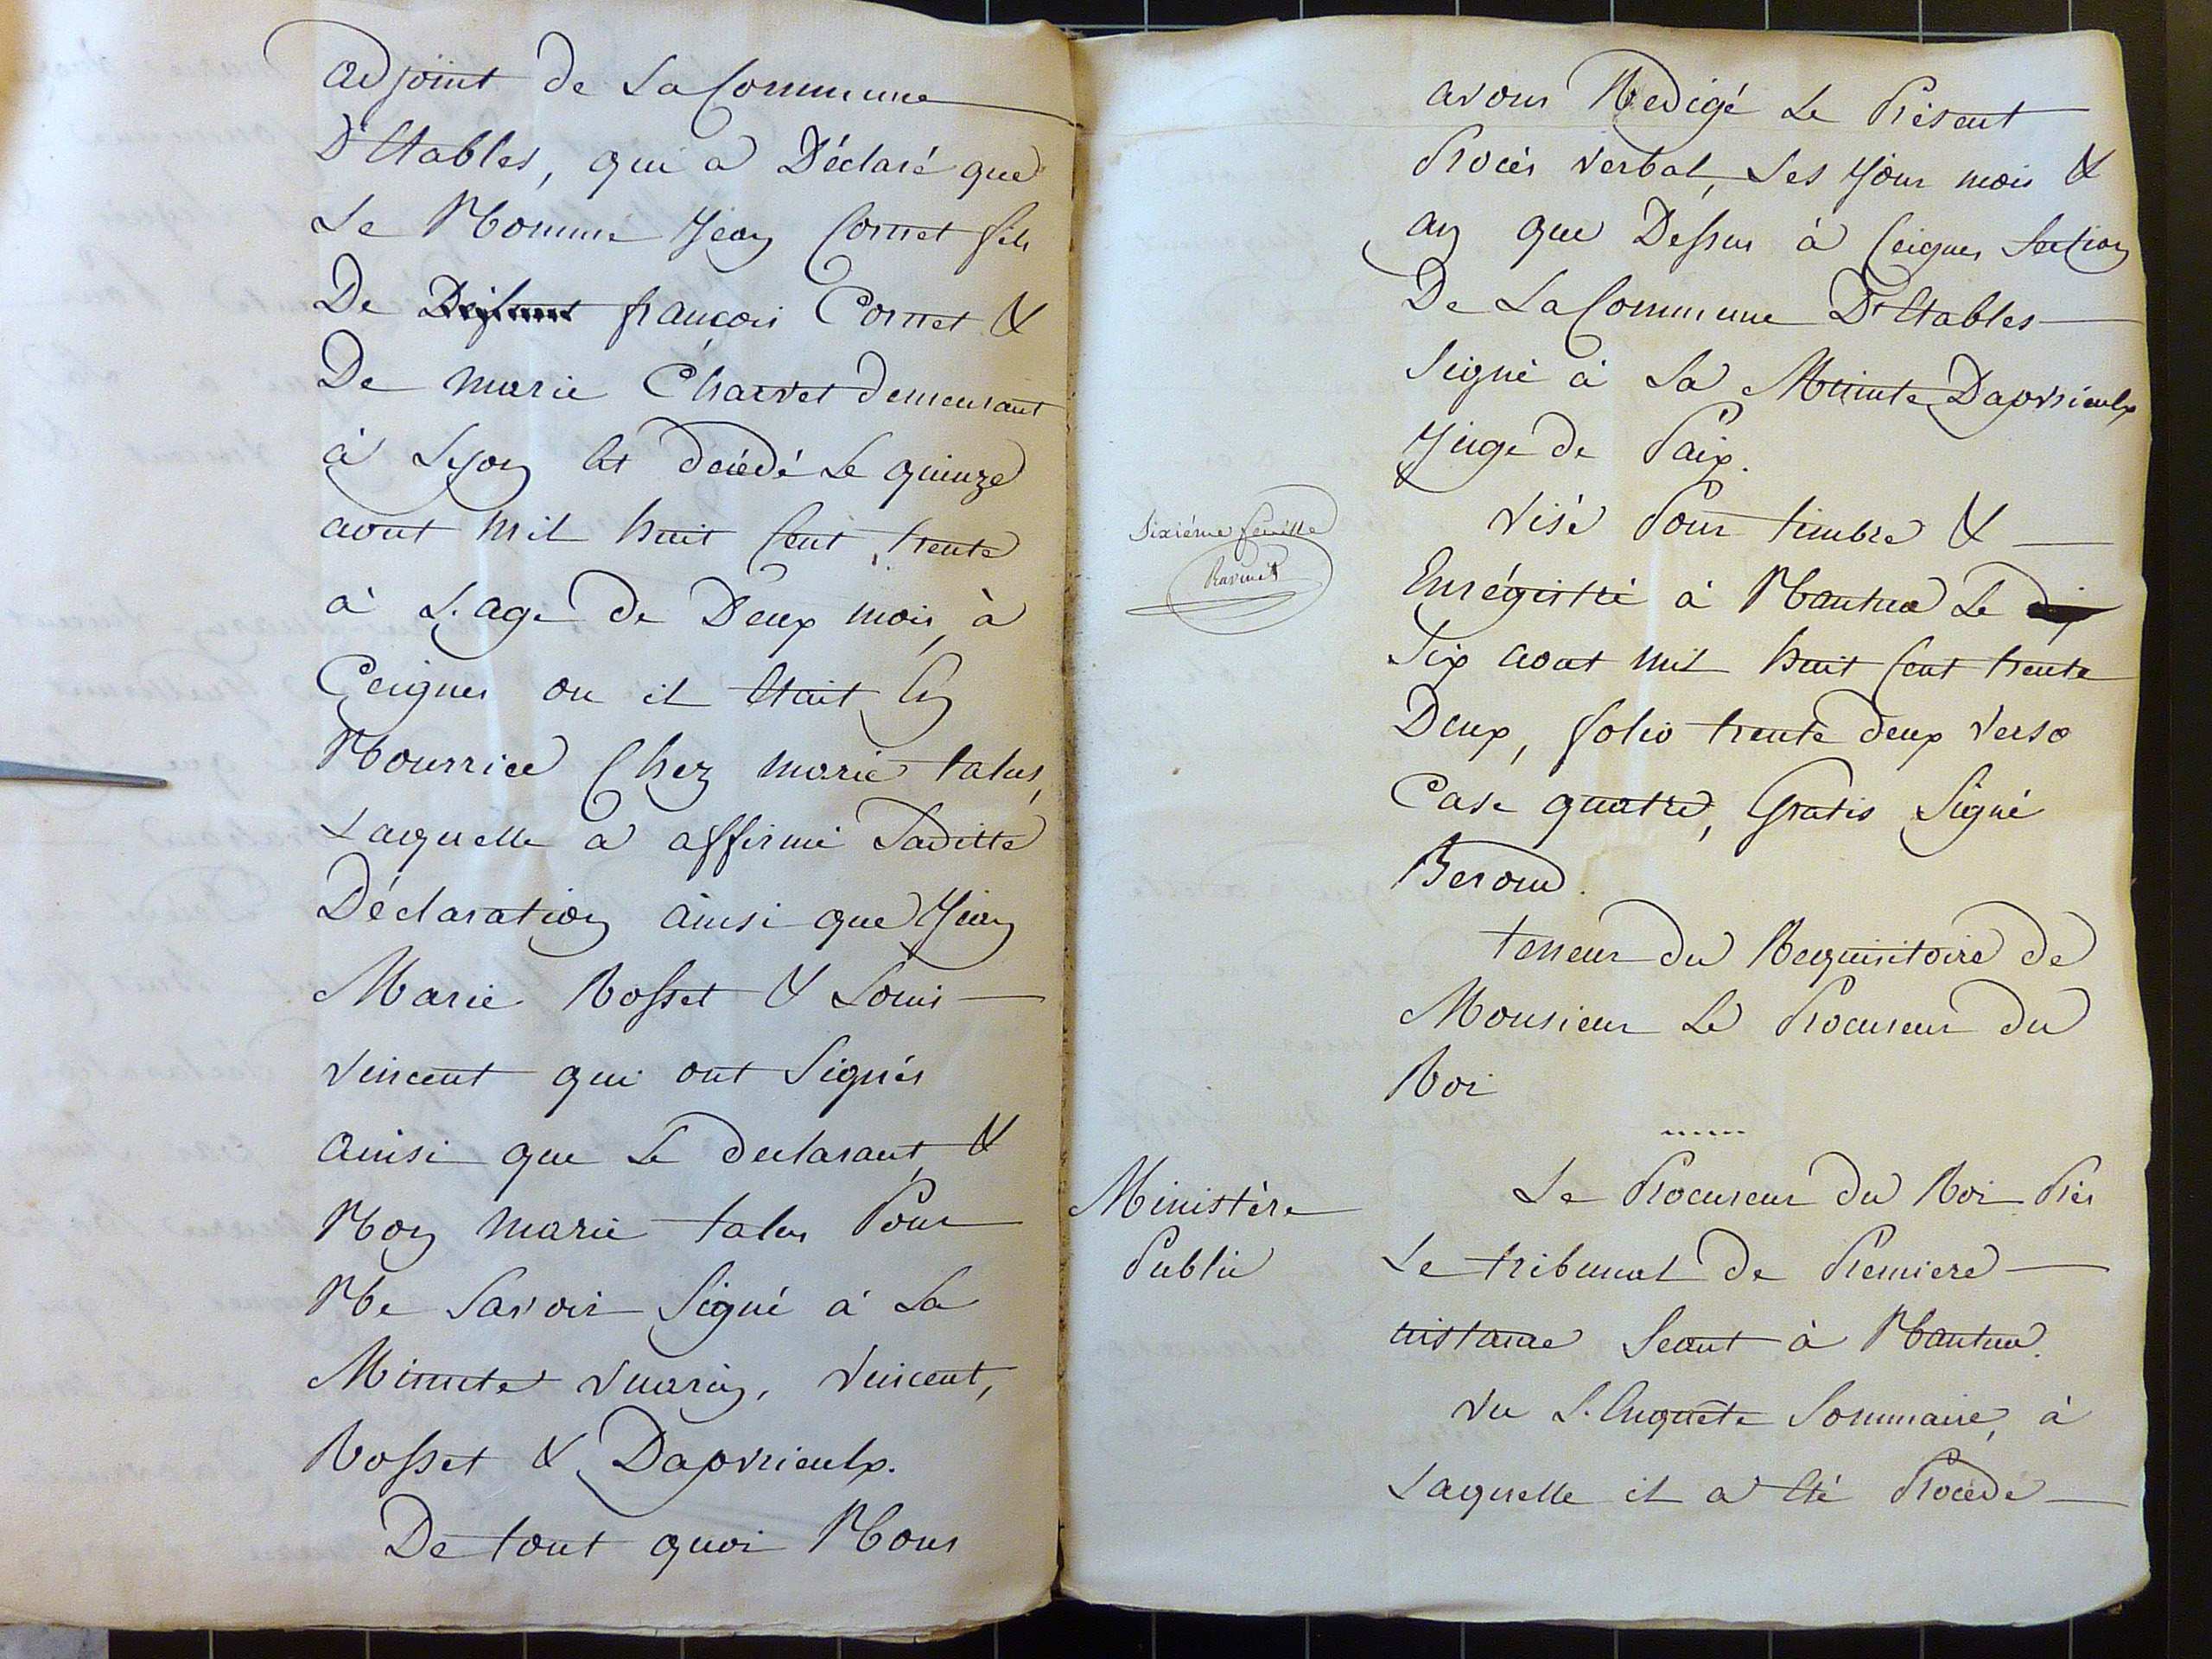 adjoint de La Commune
D'Etables, qui a Déclaré que
Le Nommé Jean Cornet fils
De Defunt françois Cornet &
De marie Charvet demeurant
à Lyon Et décédé Le quinze
aout mil huit Cent trente
à L'age de Deux mois, à
Ceignes ou il Etait En
Nourrice Chez marie talus,
Laquelle a affirmé Saditte
Déclaration ainsi que Jean
Marie Rosset & Louis
Vincent qui ont Signés
ainsi que Le declarant, &
Non marie talus Pour
Ne Savoir Signé à La
Minute Vuarin, Vincent,
Rosset & Dapvrieulx.
De tout quoi Nous
avons Redigé Le Présent
Procès verbal, Les Jour mois &
an que Dessus à Ceignes Section
De La Commune D'Etables
Signé à La Minute Dapvrieulx
Juge de Paix.
Sixième feuille
Ravinet
Visé Pour timbre &
Enrégistré à Nantua Le
Six aout mil huit Cent trente
Deux, folio trente deux verso
Case quatre, Gratis Signé
Beroud.
teneur du Requisitoire de
Monsieur Le Procureur du
Roi
Ministère
Public
Le Procureur du Roi Près
Le tribunal de Premiere
instance Séant à Nantua.
Vu L'Enquête Sommaire, à
Laquelle il a Eté Procédé